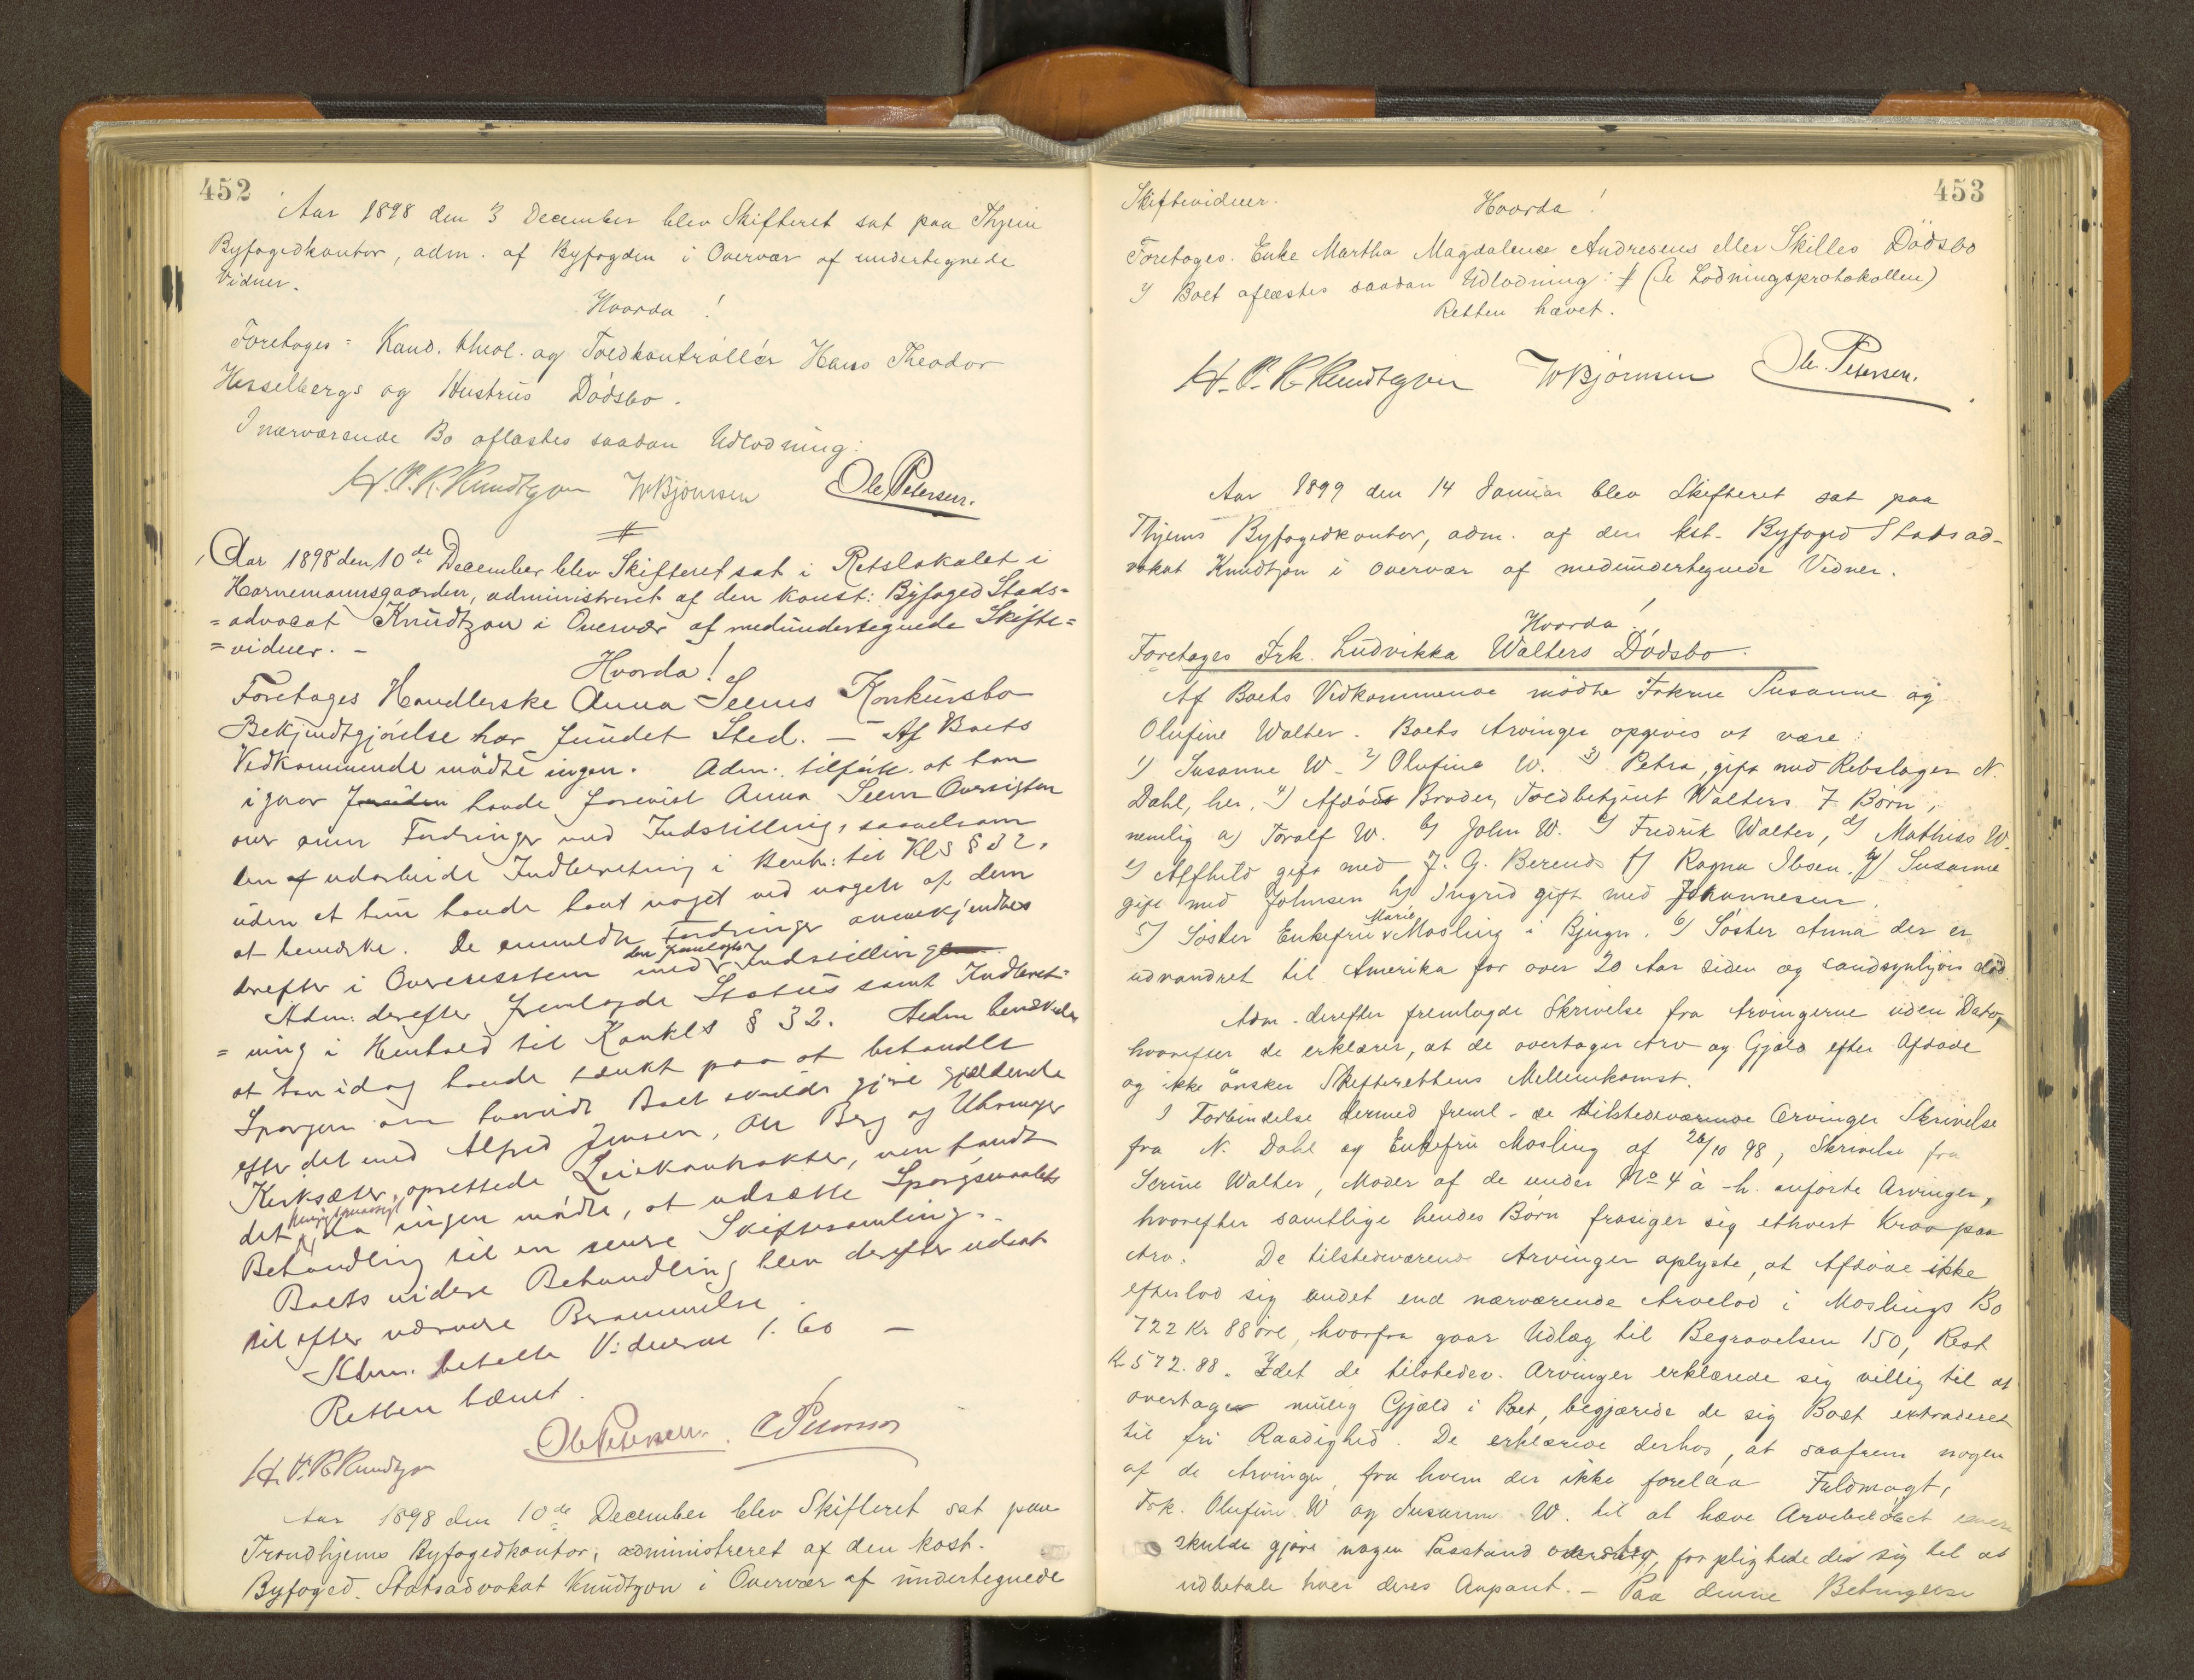 452
Aar 1898 den 3 December blev Skifteret sat paa Thjems
Byfogedkontor, adm. af Byfogden i Overvær af undertegnede
Vidner.
Hvorda!
Foretoges: Kand. theol. og Toldkontrollør Hans Theodor
Hesselbergs og Hustrus Dødsbo.
I nærværende Bo aflæstes saadan Udlodning:
H. P. K. Knudtzon W Bjørnsen Ole Petersen.
Aar 1898 den 10de December blev Skifteret sat i Retslokalet i
Hornemannsgaarden, administreret af den konst: Byfoged Stads=
=advocat Knudtzon i Overvær af medundertegnede Skifte=
=vidner. –
Hvorda!
Foretoges Handlerske Anna Seems Konkursbo
Bekjendtgjørelse har fundet Sted. – Af Boets
Vedkommende mødte ingen. Adm. tilførte at han
igaar havde forevist Anna Seem Oversigten
over anm Fordringer med Indstilling, saavelsom
den udarbeide Indberetning i Henh: til Kls § 32,
uden at hun havde havt noget ved nogen af dem
at bemærke. De anmeldte Fordringer anerkjendtes
derefter i Overensstem med den fremlagte Indstilling
Adm: derefter fremlagde Status samt Indberet=
=ning i Henhold til Konkls § 32. Adm bemærkede
at han idag havde tænkt paa at behandle
Spørgsm om hvorvidt Boet skulde gjøre gjældende
efter det med Alfred Jensen, Berg og Uhrmager
Kirksæter, oprettede Leiekontrakter, men fandt
det hensigtsmæssigt da ingen mødte, at udsætte Spørgsmaalets
Behandling til en senere Skiftesamling.
Boets videre Behandling blev derefter udsat
til efter nærmere Berammelse.
Adm. betalte Vidnerne 1.60 –
Retten hævet.
H. P. K. Knudtzon Ole Petersen.
Aar 1898 den 10de December blev Skifteret sat paa
Trondhjems Byfogedkontor, administreret af den kost.
Byfoged. Statsadvokat Knudtzon i Overvær af undertegnede
453
Skiftevidner.
Hvorda!
Foretoges. Enke Martha Magdalena Andresens eller Skilles Dødsbo
I Boet aflæstes saadan Udlodning: (Se Lodningsprotokollen)
Retten hævet.
H. P. K. Knudtzon W Bjørnsen Ole Petersen.
Aar 1899 den 14 Januar blev Skifteret sat paa
Thjems Byfogedkontor, adm. af den kst. Byfoged Statsad-
vokat Knudtzon i overvær af medundertegnede Vidner.
Hvorda!
Foretoges Frk. Ludvikka Walters Dødsbo.
Af Boets Vedkommende mødte Frkne Susanne og
Olufine Walter. Boets Arvinger opgives at være:
1) Susanne W. 2) Olufine W. 3) Petra, gift med Rebslager N.
Dahl, her. 4) Afdøds Broder, Toldbetjent Walters 7 Børn,
nemlig a) Toralf W. b) John W. c) Fredrik Walter, d) Mathias W.
e) Alfhild gift med J. G. Berends f) Ragna Ibsen. g) Susanne
gift med Johnsen h) Ingrid gift med Johannesen.
5) Søster Enkefru Marie Mosling i Bjugn. 6) Søster Anna der er
udvandret til Amerika for over 20 Aar siden og sandsynligvis død.
Adm. derefter fremlagde Skrivelse fra Arvingerne uden Dato,
hvorefter de erklærer, at de overtager Arv og Gjæld efter Afdøde
og ikke ønsker Skifterettens Mellemkomst.
I Forbindelse dermed freml. de tilstedeværende Arvinger Skrivelse
fra N. Dahl og Enkefru Mosling af 26/10 98, Skrivelse fra
Serine Walter, Moder af de under No 4 a-h. anførte Arvinger,
hvorefter samtlige hendes Børn frasiger sig ethvert Krav paa
Arv. De tilstedeværende Arvinger oplyste, at Afdøde ikke
efterlod sig andet end nærværende Arvelod i Moslings Bo
722 Kr 88 øre, hvorfra gaar Udlæg til Begravelsen 150, Rest
K 572.88. Idet de tilstedev. Arvinger erklærede sig villig til at
overtage mulig Gjæld i Boet, begjærede de sig Boet extraderet
til fri Raadighed. De erklærede derhos, at saafrem nogen
af de Arvinger, fra hvem der ikke forelaa Fuldmagt,
Frk. Olufine W og Susanne W. til at hæve Arvebeløbet
skulde gjøre nogen Paastand, forpligtede de sig til at
udbetale hver deres Anpart. – Paa denne Betingelse